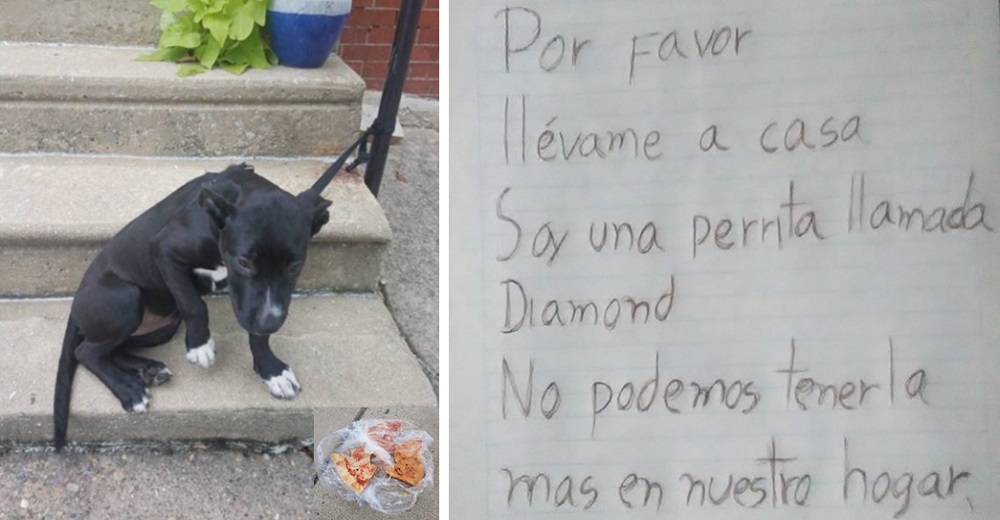 Por Favor
llévame a casa
Soy una perrita llamada
Diamond
No podemos tenerla
mas en nuestro hogar.